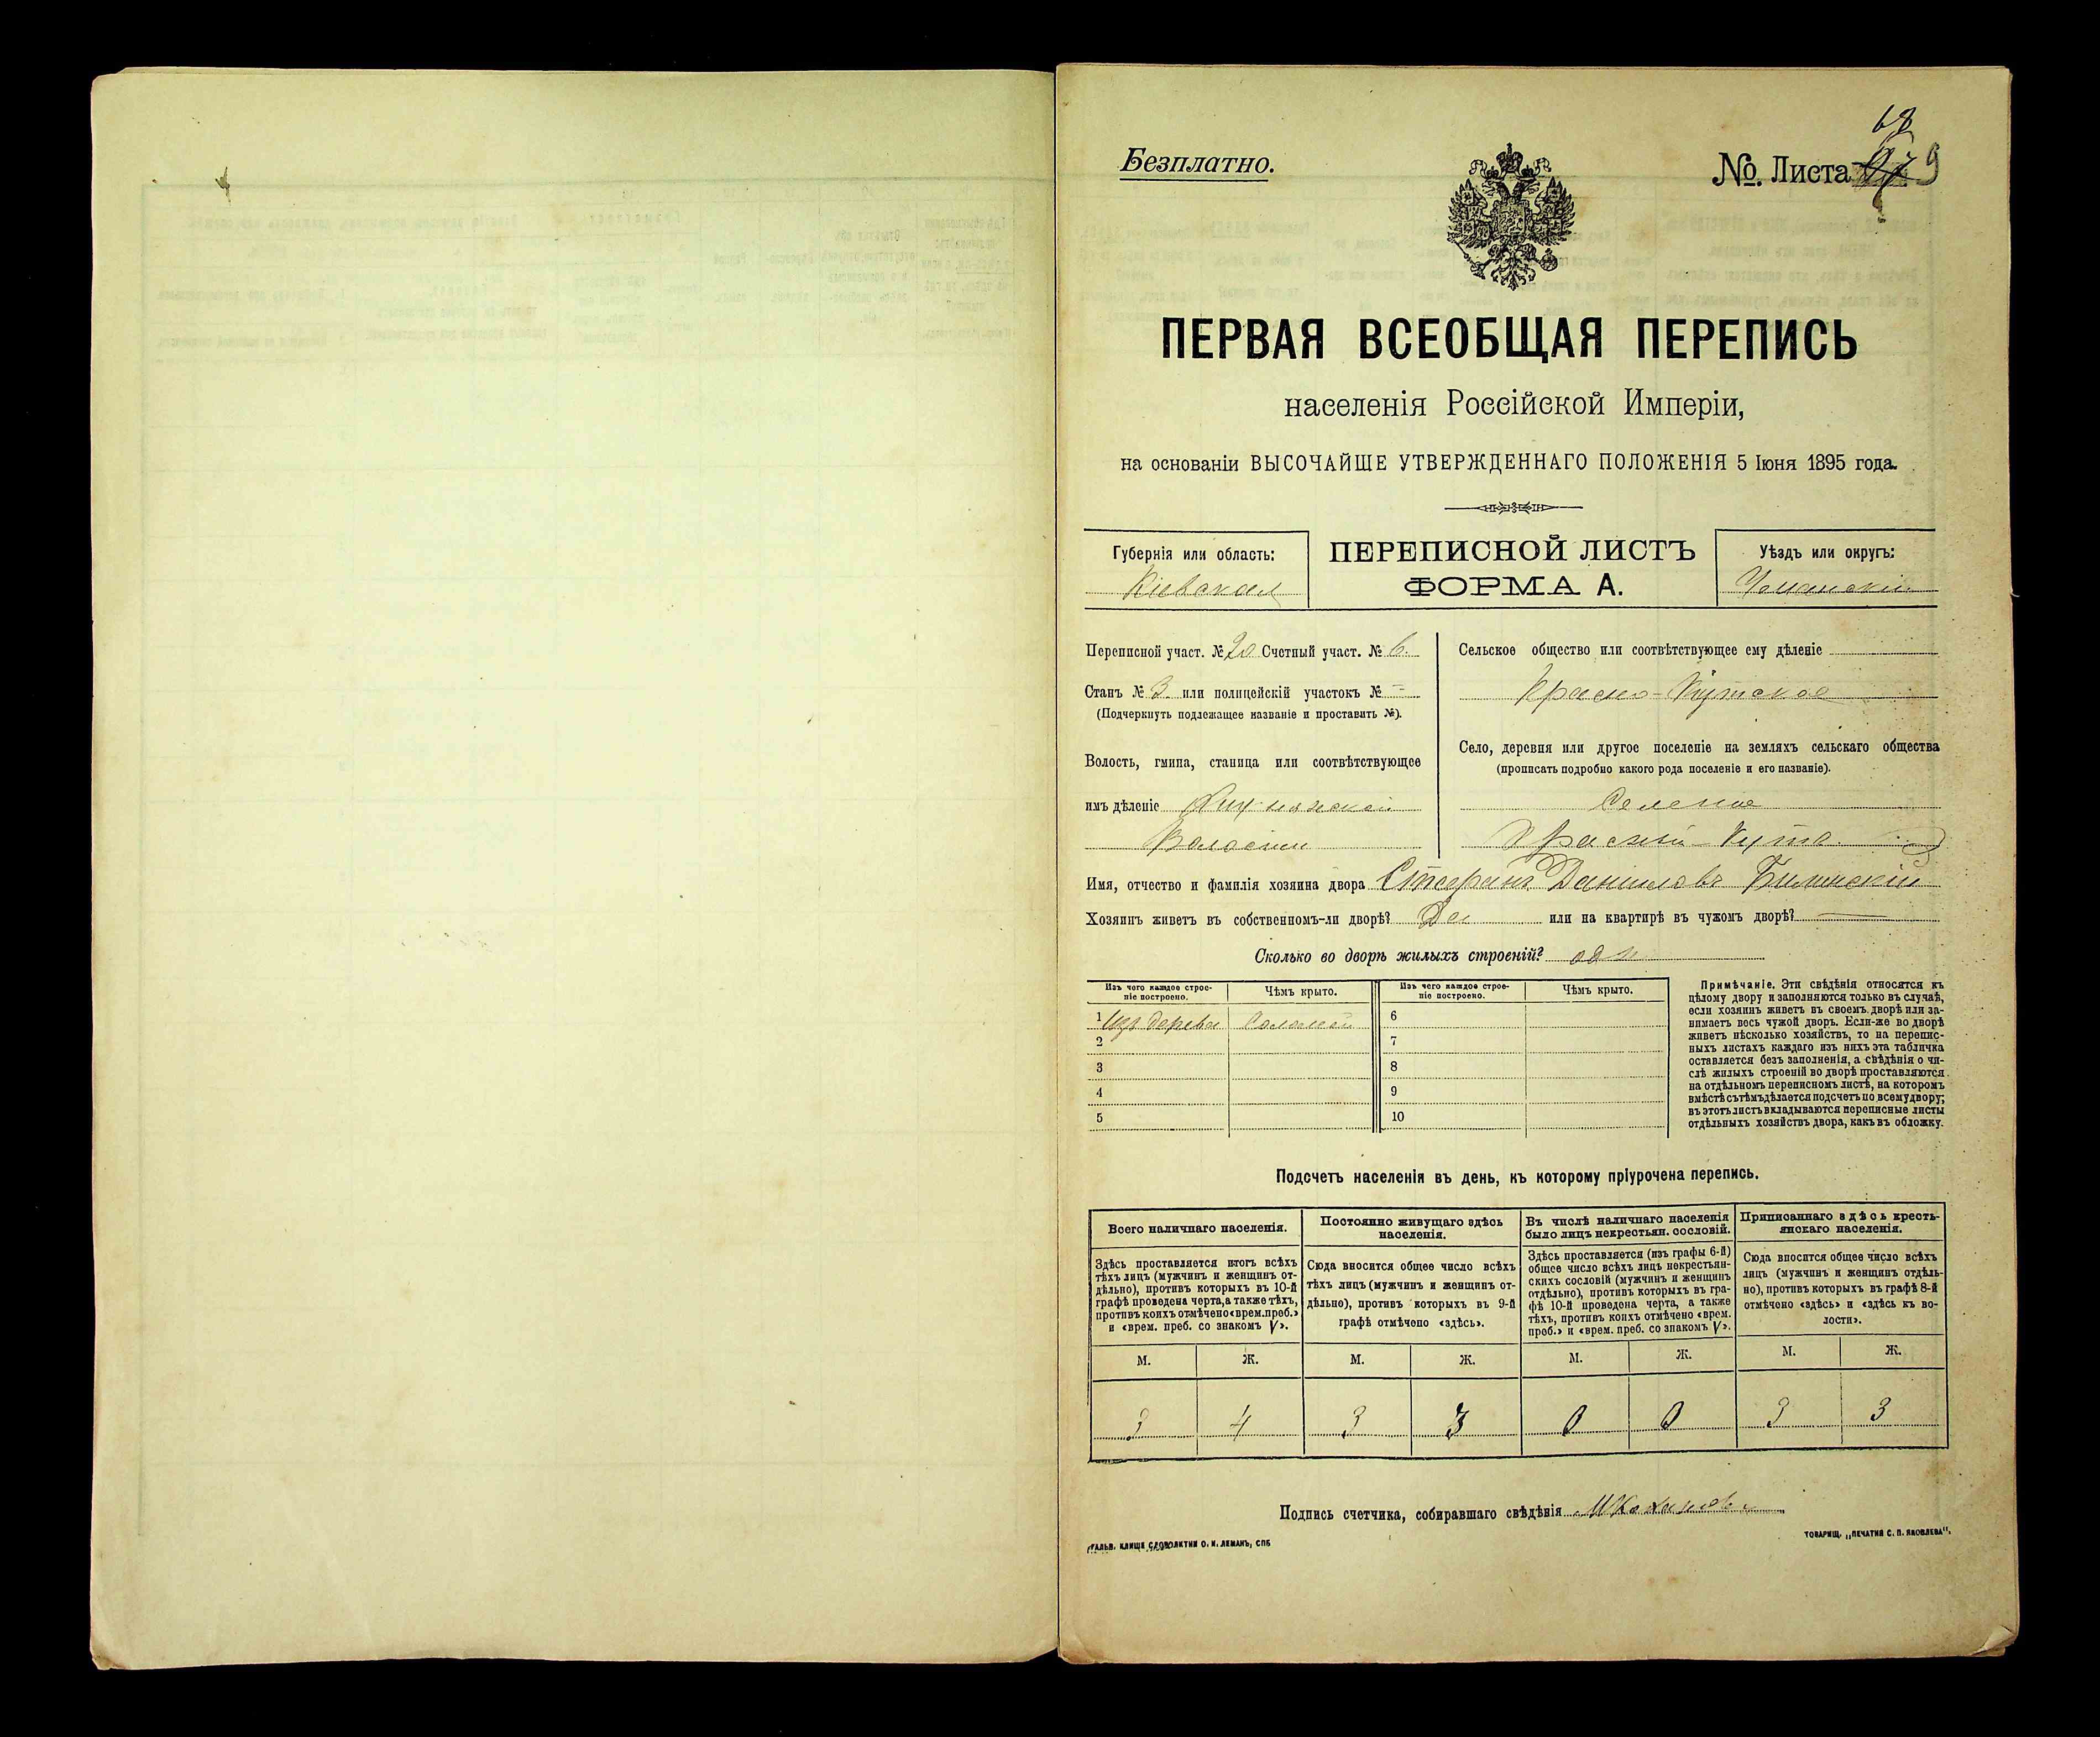 68
Безплатно.
№. Листа 9
ПЕРВАЯ ВСЕОБЩАЯ ПЕРЕПИСЬ
населенія Россійской Имперіи,
на основаніи ВЫСОЧАЙШЕ УТВЕРЖДЕННАГО ПОЛОЖЕНІЯ 5 Іюня 1895 года.
Губернія или область:
Кіевская
ПЕРЕПИСНОЙ ЛИСТЪ
ФОРМА А.
Уѣздъ или округъ:
Уманскій
Переписной участ. № 20 Счетный участ. № 6.
Станъ № 3 или полицейскій участокъ № —
(Подчеркнуть подлежащее названіе и проставить №).
Волость, гмина, станица или соотвѣтствующее
имъ дѣленіе
Волости
Сельское общество или соотвѣтствующее ему дѣленіе
Красно-Кутское
Село, деревня или другое поселеніе на земляхъ сельскаго общества
(прописать подробно какого рода поселеніе и его названіе).
Селеніе
Красный-Кутъ.
Имя, отчество и фамилія хозяина двора Стефанъ Даниловъ Билинскій
Хозяинъ живетъ въ собственномъ-ли дворѣ? Да или на квартирѣ въ чужомъ дворѣ? —
Сколько во дворѣ жилыхъ строеній?
Изъ чего каждое строе-
ніе построено.
Чѣмъ крыто.
1 Изъ дерева Соломой
2
3
4
5
Изъ чего каждое строе-
ніе построено.
Чѣмъ крыто.
6
7
8
9
10
Примѣчаніе. Эти свѣдѣнія относятся къ
цѣлому двору и заполняются только въ случаѣ,
если хозяинъ живетъ въ своемъ дворѣ или за-
нимаетъ весь чужой дворъ. Если-же во дворѣ
живетъ нѣсколько хозяйствъ, то на перепис-
ныхъ листахъ каждаго изъ нихъ эта табличка
оставляется безъ заполненія, а свѣдѣнія о чи-
слѣ жилыхъ строеній во дворѣ проставляются
на отдѣльномъ переписномъ листѣ, на которомъ
вмѣстѣ съ тѣмъ дѣлается подсчетъ по всему двору;
въ этотъ листъ вкладываются переписные листы
отдѣльныхъ хозяйствъ двора, какъ въ обложку.
Подсчетъ населенія въ день, къ которому пріурочена перепись.
Всего наличнаго населенія.
Здѣсь проставляется итогъ всѣхъ
тѣхъ лицъ (мужчинъ и женщинъ от-
дѣльно), противъ которыхъ въ 10-й
графѣ проведена черта, а также тѣхъ,
противъ коихъ отмѣчено «врем. преб.»
и «врем. преб. со знакомъ V».
М. Ж.
3 4
Постоянно живущаго здѣсь
населенія.
Сюда вносится общее число всѣхъ
тѣхъ лицъ (мужчинъ и женщинъ от-
дѣльно), противъ которыхъ въ 9-й
графѣ отмѣчено «здѣсь».
М. Ж.
3 3
Въ числѣ наличнаго населенія
было лицъ некрестьян. сословій.
Здѣсь проставляется (изъ графы 6-й)
общее число всѣхъ лицъ некрестьян-
скихъ сословій (мужчинъ и женщинъ
отдѣльно), противъ которыхъ въ гра-
фѣ 10-й проведена черта, а также
тѣхъ, противъ коихъ отмѣчено «врем.
преб.» и «врем. преб. со знакомъ V».
М. Ж.
0 0
Приписаннаго здѣсь кресть-
янскаго населенія.
Сюда вносится общее число всѣхъ
лицъ (мужчинъ и женщинъ отдѣль-
но), противъ которыхъ въ графѣ 8-й
отмѣчено «здѣсь» и «здѣсь къ во-
лости».
М. Ж.
3 3
Подпись счетчика, собиравшаго свѣдѣнія
ГАЛЬВ. КЛИШЕ СЛОВОЛИТНИ О. И. ЛЕМАНЪ, СПБ
ТОВАРИЩ. „ПЕЧАТНЯ С. П. ЯКОВЛЕВА".